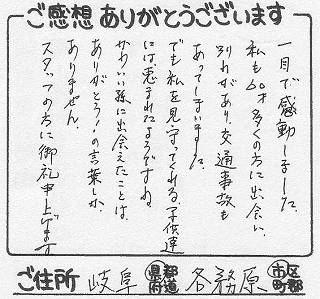 ご感想ありがとうございます
一目で感動しました。
私も60才 多くの方に出会い、
別れがあり、交通事故も
あってしまいました。
でも私を見守ってくれる子供達
には恵まれたようですね。
かわいい孫に出会えたことは、
ありがとう!の言葉しか
ありません。
スタッフの方に御礼申上げます
ご住所 岐阜 都道府県 各務原 市区町郡